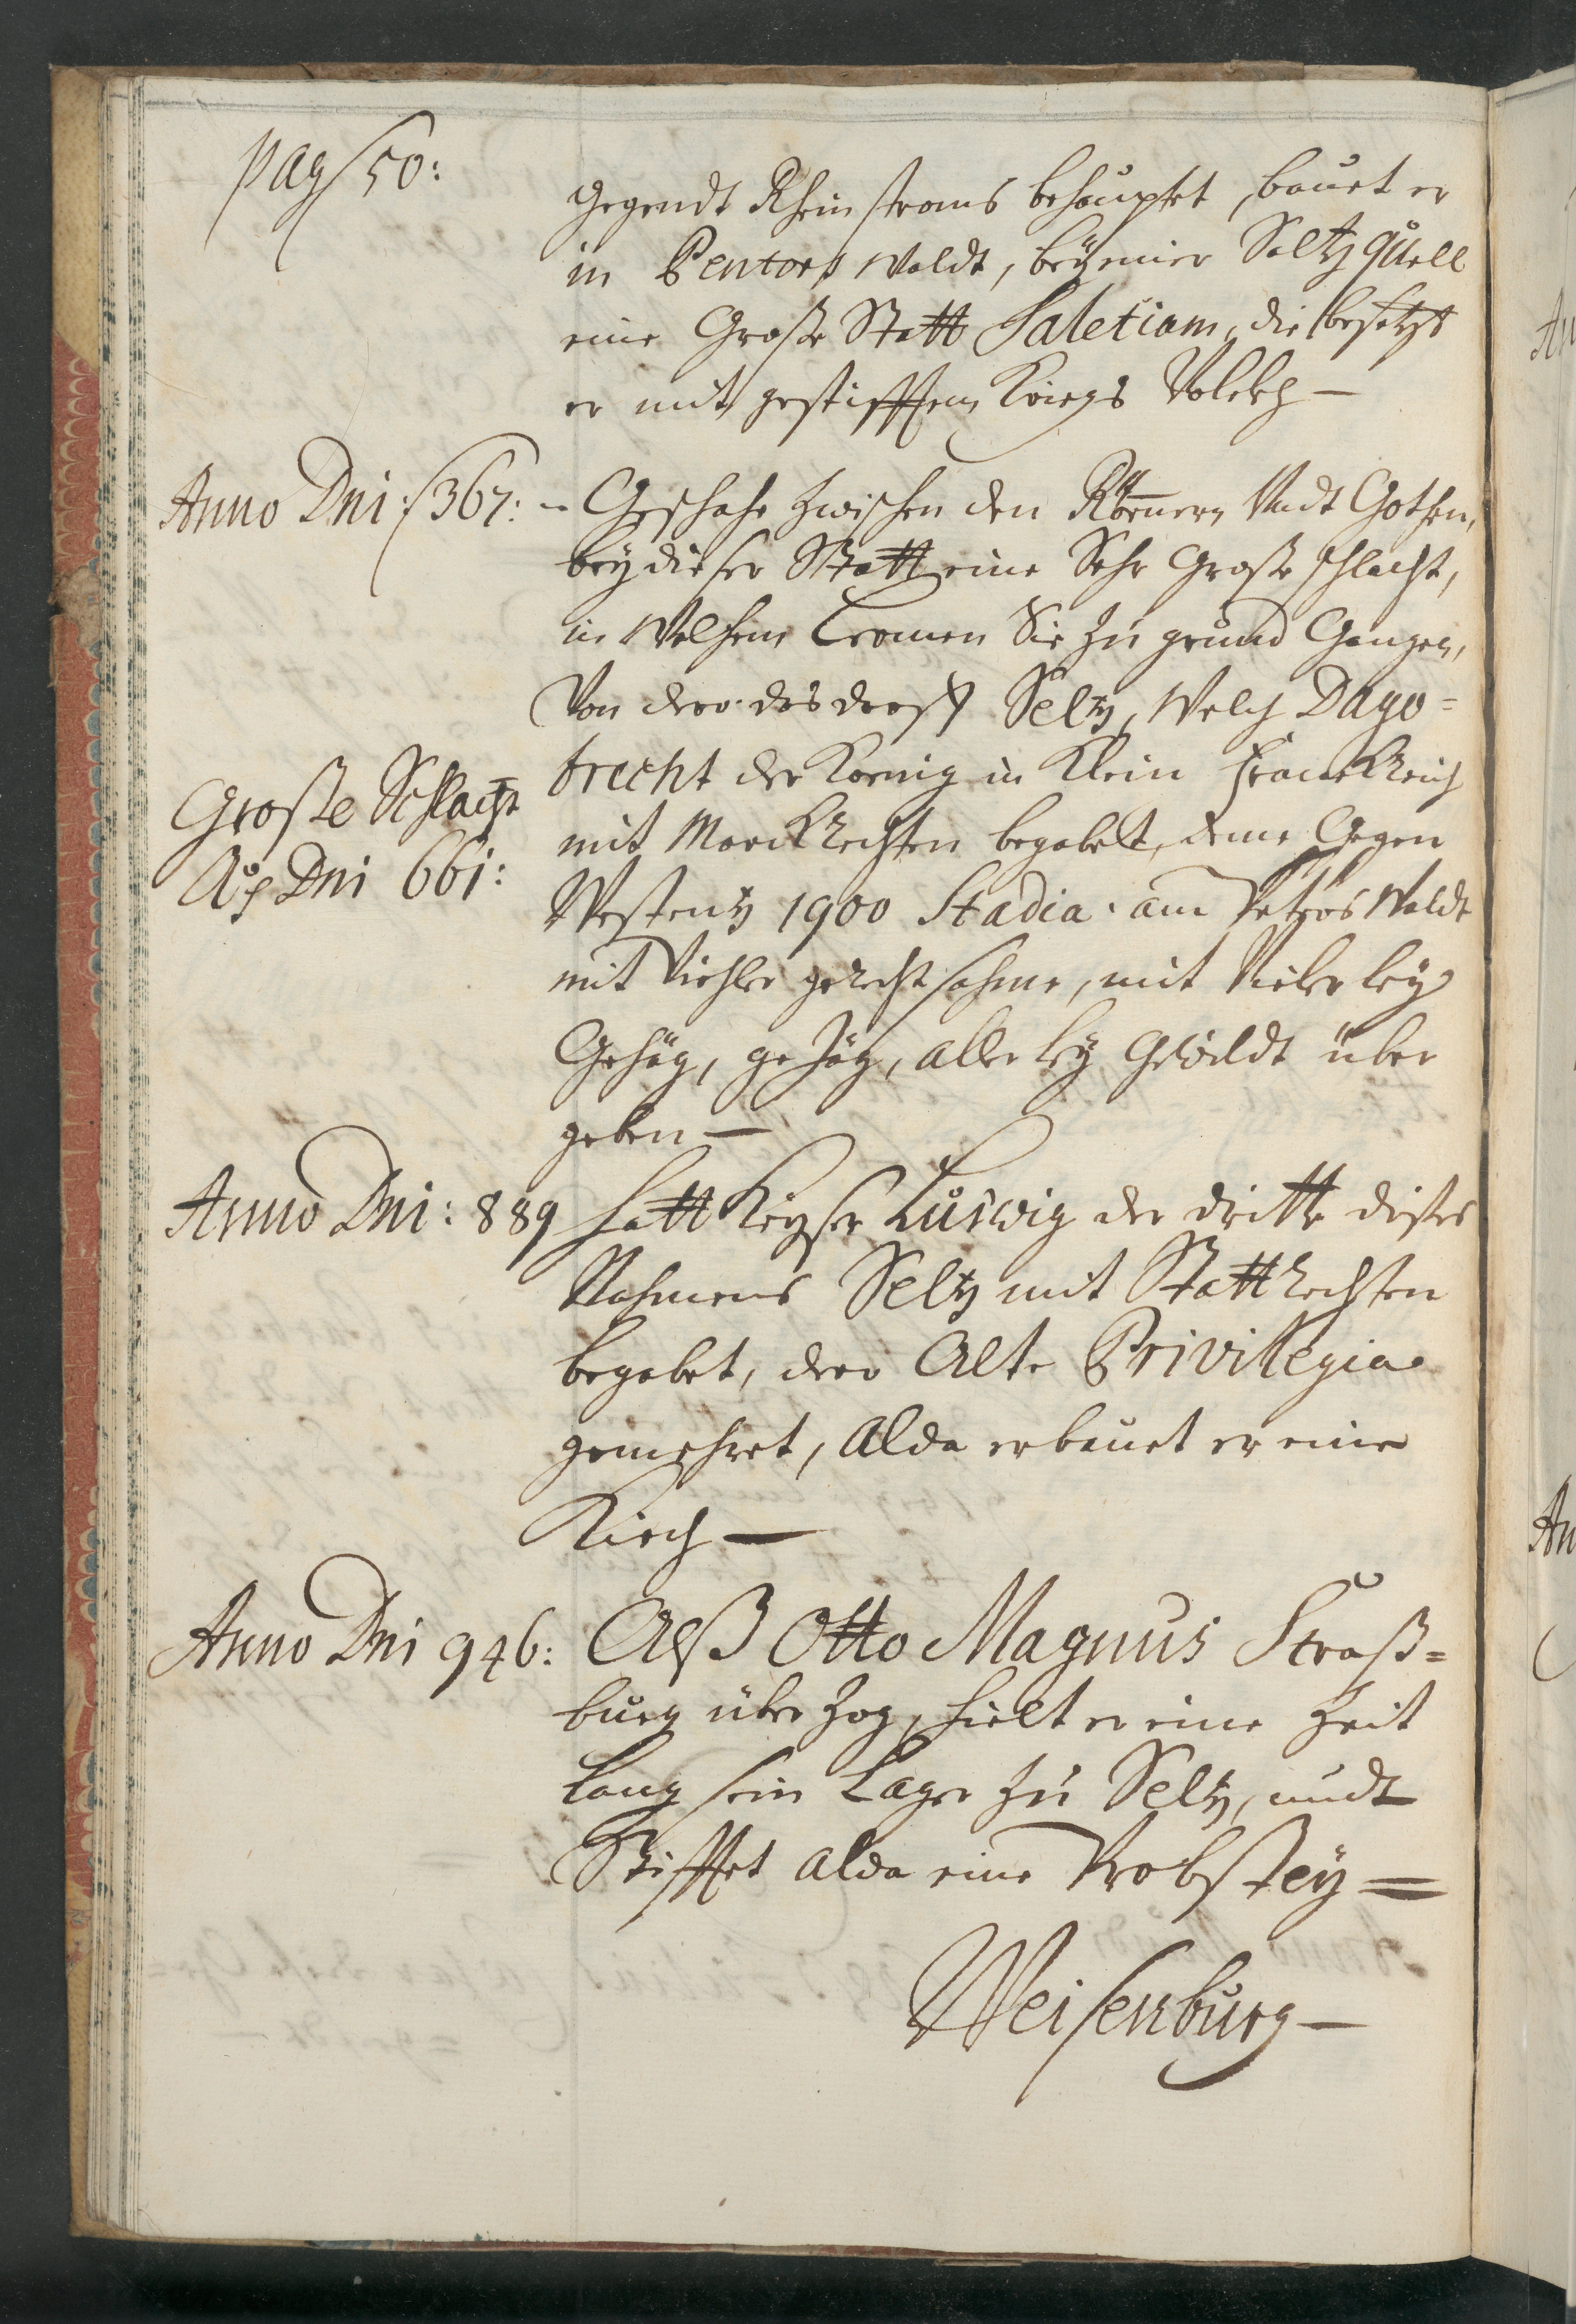 pag 50:
gegendt Rheinstroms behauptet, bauet er
in Bentors Waldt, beÿ einer Saltz quell
eine Große Statt Saletiam, die besetzt
er mit gestifften Kriegs Volckh —
Anno Dni: 367: Geschahe zwischen den Römern Undt Gothen,
beÿ dieser Statt eine Sehr Große schlacht,
in Welchem Cromen Sie zu grund Gangen,
Von dero das dorff Seltz, Welch Dago=
brecht der Koenig in Klein Franckreich
Große Schlacht
mit Marckrechten begabelt, deme Gegen
Ao Dni 661:
Westentz 1900 Stadia am Petros Waldt
mit Viehler gerechtsahme, mit Vielerleÿ
Gehäg, gejäg, allerleÿ Gewildt über
geben —
Anno Dni: 889 hatt Keÿser Ludwig der dritte dises
Nahmens Seltz mit Statt rechten
begabet, dero Alte Privilegia
gemehret, Alda erbauet er eine
Kirch —
Anno Dni 946: Alß Otto Magnus Straß=
burg über zog, hielt er eine Zeit
lang sein Lager zu Seltz, undt
Stifftet alda eine Probsteÿ =
Weisenburg —